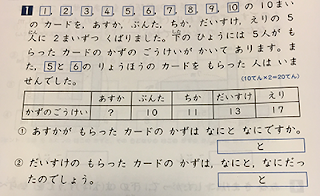 1 1 2 3 4 5 6 7 8 9 10 の 10まい
の カードを、あすか、ぶんた、ちか、だいすけ、えりの 5
人に 2まいずつ くばりました。下の ひょうには 5人が も
らった カードの かずの ごうけいが かいて あります。ま
た、5と 6の りょうほうの カードを もらった 人は い
ませんでした。
(10てん×2=20てん)
あすか ぶんた ちか だいすけ えり
かずのごうけい ? 10 11 13 17
① あすかが もらった カードの かずは なにと なにですか。
と
② だいすけの もらった カードの かずは、なにと、なにだっ
たのでしょう。
と